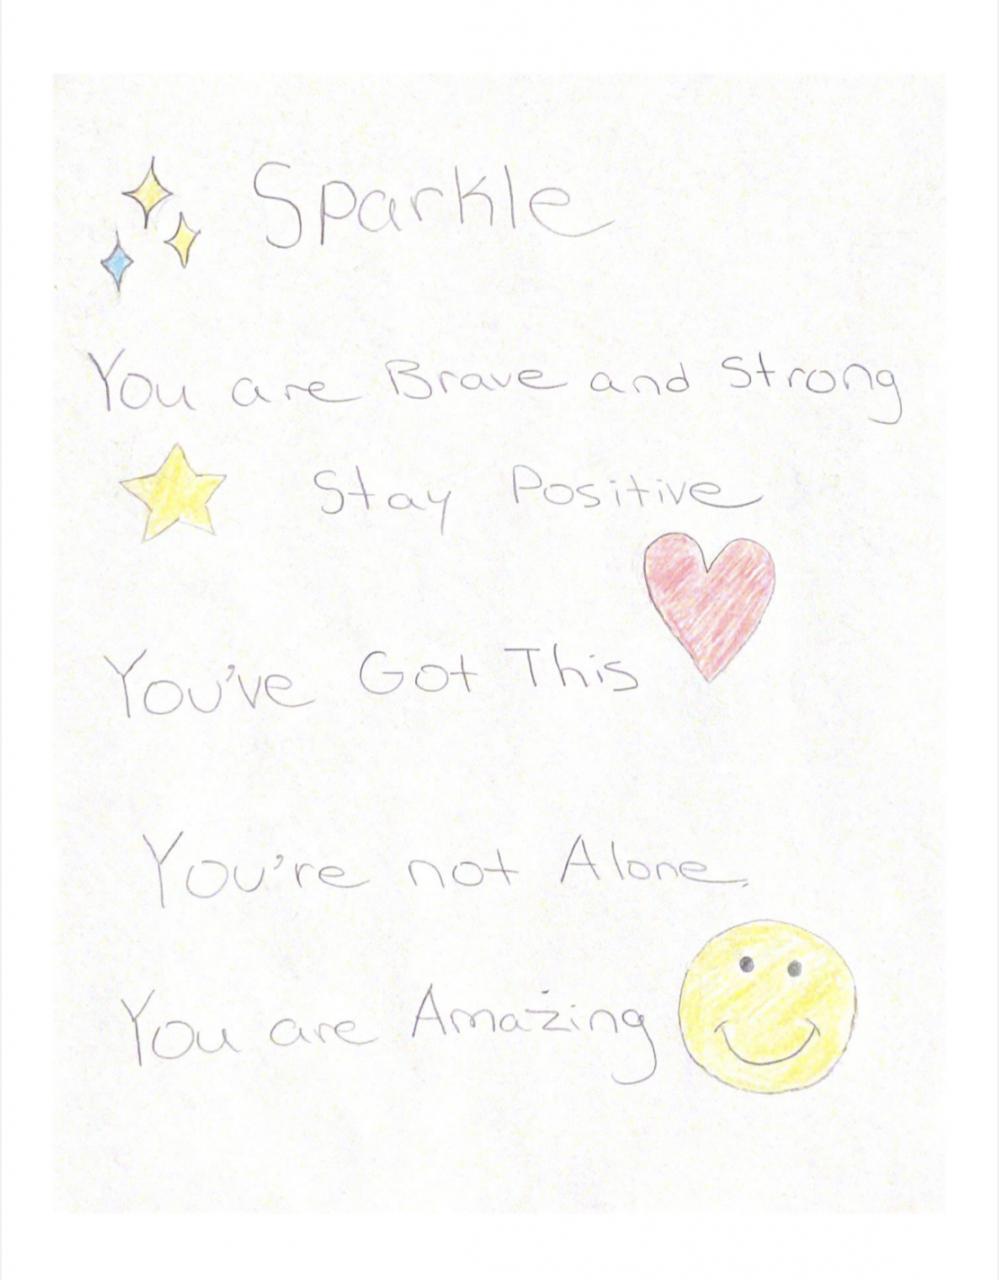 Sparkle
You are Brave and Strong
Stay Positive
You've Got This
You're not Alone.
You are Amazing